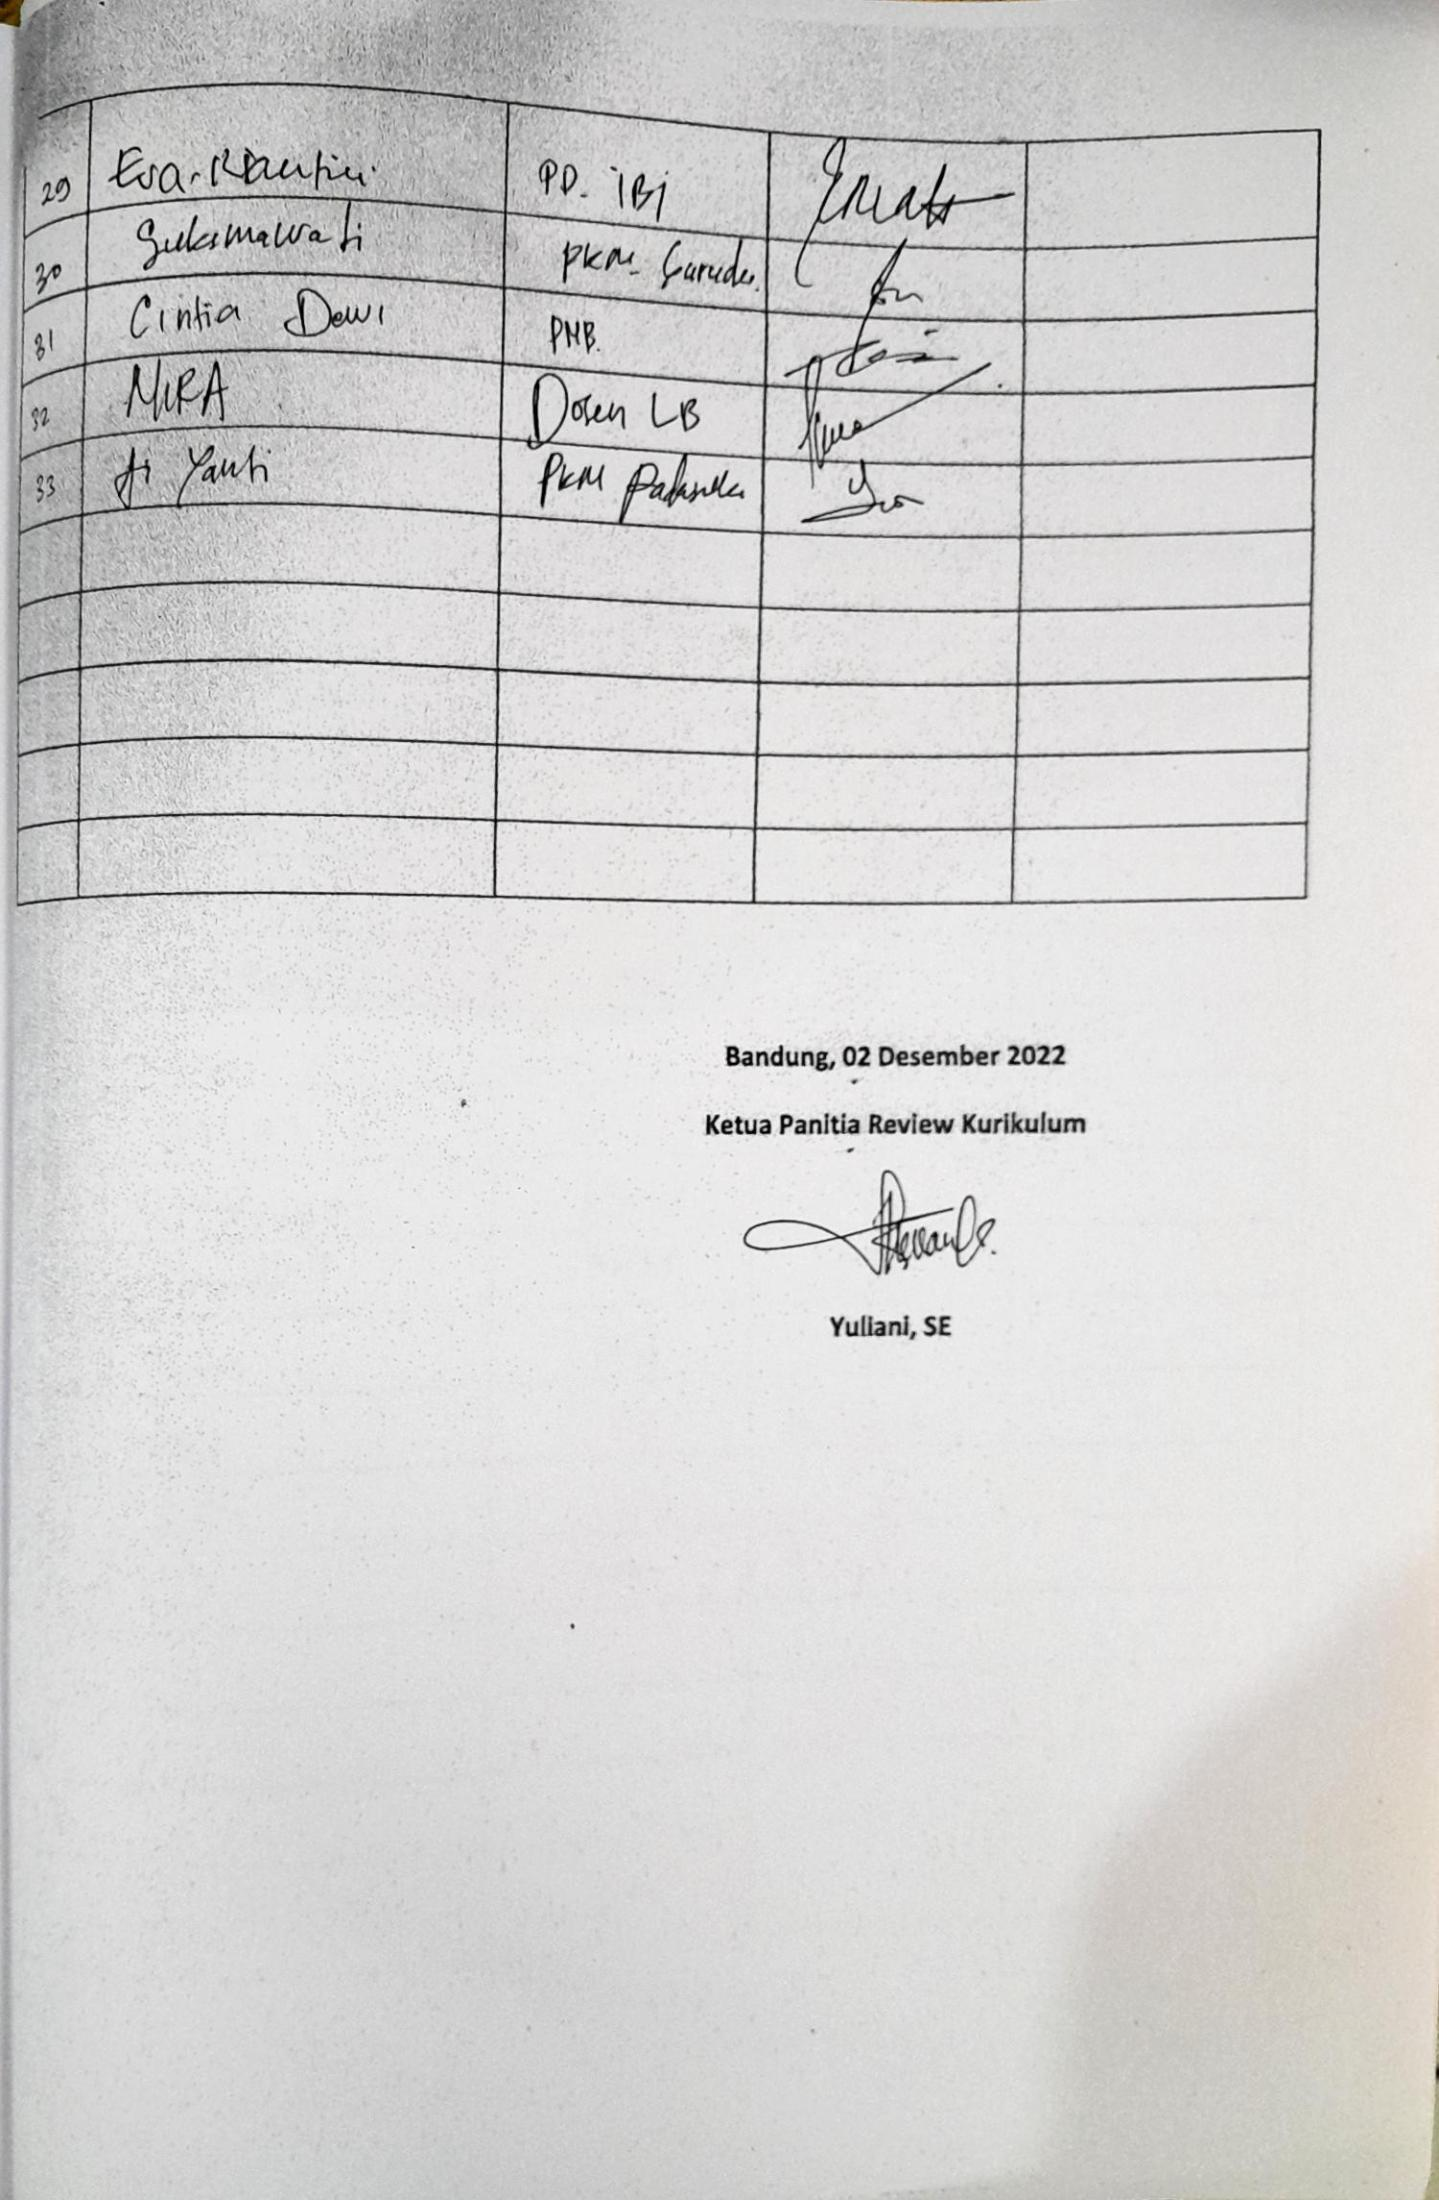 29 Eva. Riantini PD. IBI
30 Sukamawati PKM. Garuda.
31 Cintia Dewi PMB.
32 MIRA Dosen LB
33 Ai Yanti PKM Padasuka
Bandung, 02 Desember 2022
Ketua Panitia Review Kurikulum
Yuliani, SE